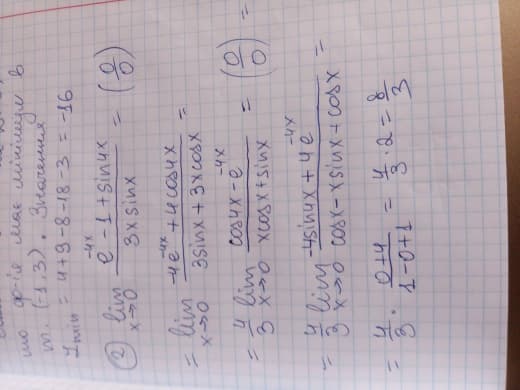 то ф-ія має мінімум в
т. (-1.3). Значення
Zmin = 4+9-8-18-3 = -16
② lim x→0 (e^(-4x) - 1 + sin4x)/(3x sinx) = (0/0)
= lim x→0 (-4e^(-4x) + 4cos4x)/(3sinx + 3xcosx) =
= 4/3 lim x→0 (cos4x - e^(-4x))/(xcosx + sinx) = (0/0) =
= 4/3 lim x→0 (-4sin4x + 4e^(-4x))/(cosx - xsinx + cosx) =
= 4/3 · (0+4)/(1-0+1) = 4/3 · 2 = 8/3